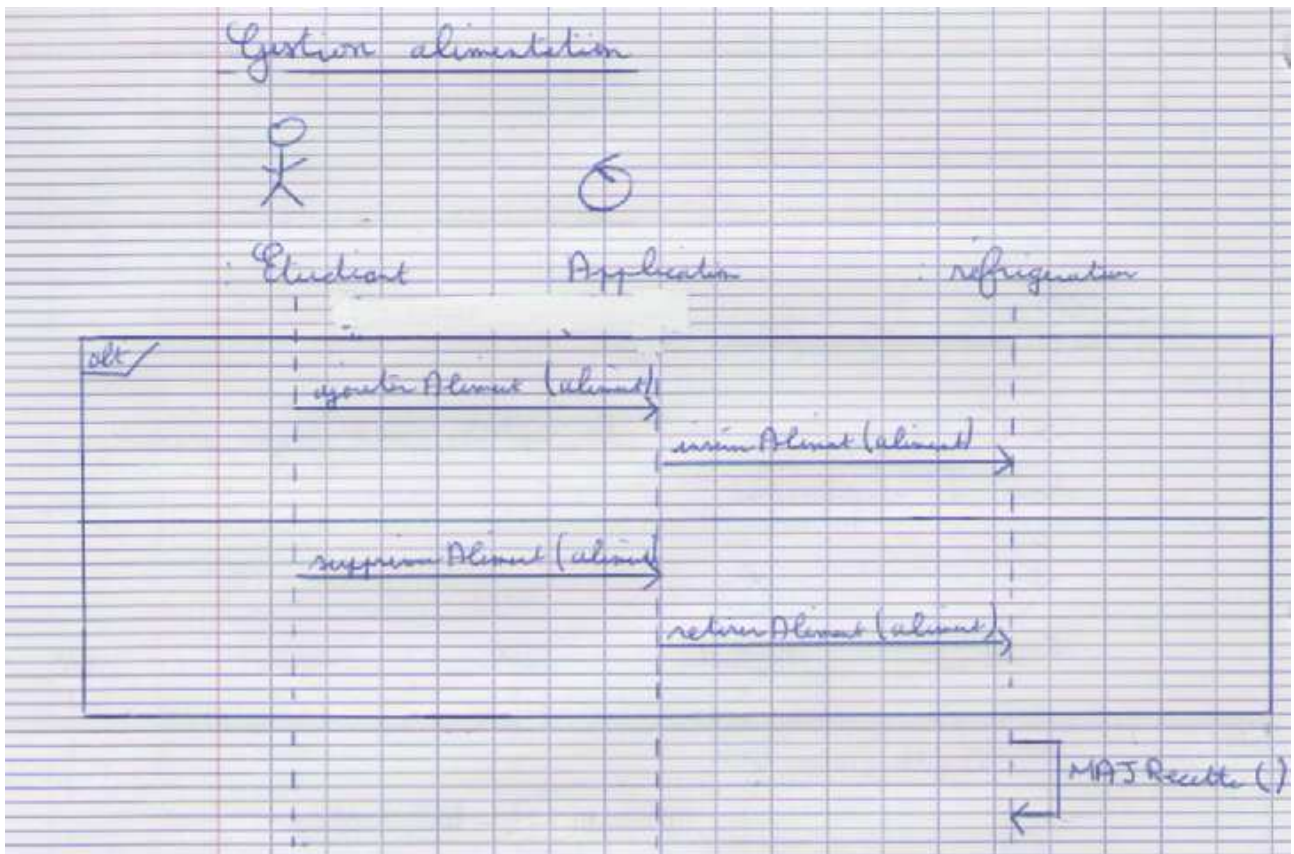 Gestion alimentation
: Etudiant Application : réfrigerateur
alt
ajouter Aliment (aliment)
insérer Aliment (aliment)
supprimer Aliment (aliment
retirer Aliment (aliment)
MAJ Recette ()